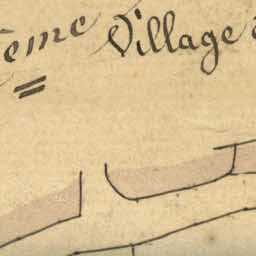 eme Village